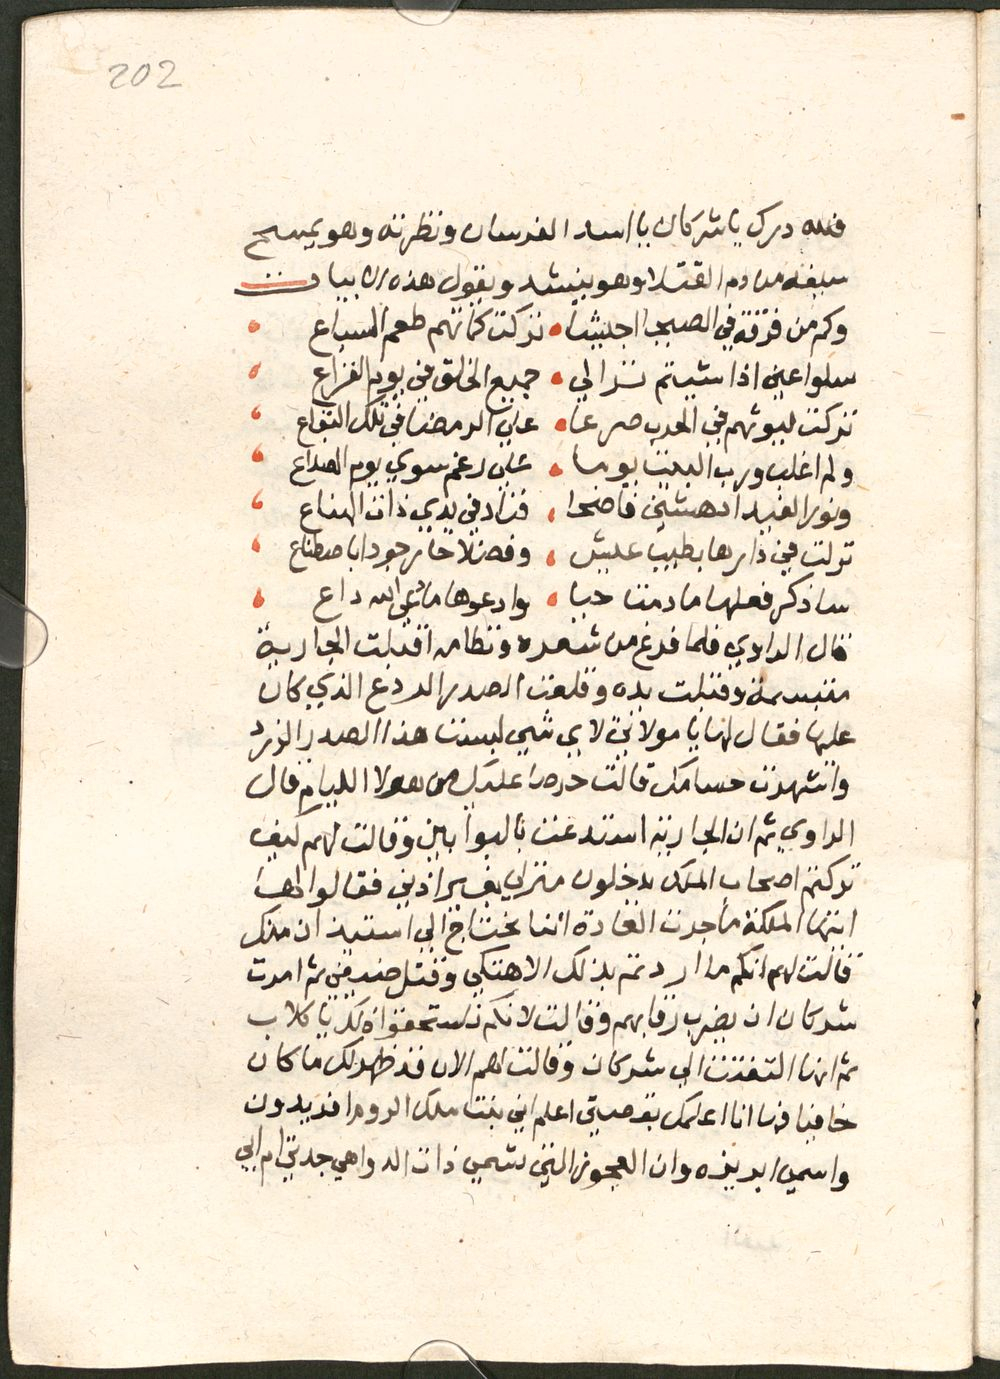 202
فلله درك يا شركان يا اسد الفرسان ونظرته وهو يمسح
سيفه من دم القتلا وهو ينشد ويقول هذه الابيات
وكم من فرقة في الصبح اجليشا • تركت كماتهم طعم السباع
سلوا عني اذا شيتم نزالي • جميع الخلق في يوم الفزاع
تركت ليوثهم في الحرب صرعا • علي الرمضا في تلك البقاع
ولم اغلب ورب البيت يوما • علي رغم سوي يوم الصداع
ونور الغيد ادهشني فاضحا • فناد في يدي ذات الهناع
نزلت في دارها بطيب عيش • وفضلا حاز جودا باصطناع
ساذكر فعلها ما دمت حيا • وادعوها ما دعي الله داع
قال الراوي فلما فرغ من شعره ونظامه اقبلت الجارية
متبسمة وقبلت يده وقلعت الصدر الدرع الذي كان
عليها فقال لها يا مولاتي لاي شي لبستي هذا الصدر الزرد
واشهرت حسامك قالت حرصا عليك من هولا الليام قال
الراوي ثم ان الجارية استدعت بالبوابين وقالت لهم كيف
تركتم اصحاب الملك يدخلون منزلي بغير اذني فقالوا لها
ايتها الملكة ما جرت العادة اننا نحتاج الي استيذان منك
قالت لهم انكم ما اردتم بذلك الا هتكي وقتل ضيفي ثم امرت
شركان ان يضرب رقابهم وقالت لانكم تستحقوا ذلك يا كلاب
ثم انها التفتت الي شركان وقالت لهم الان قد ظهر لك ما كان
خافيا فها انا اعلمك بقصتي اعلم اني بنت ملك الروم افريدون
واسمي ابريزه وان العجوز التي تسمي ذات الدواهي جدتي ام ابي